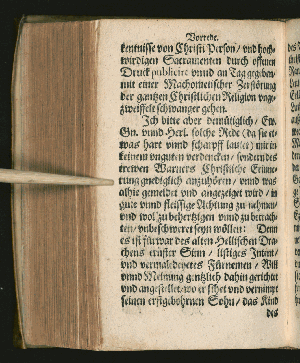 Vorrede.
kentnisse von Christi Person/ und hoch-
wirdigen Sacramenten durch offenen
Druck publicirt vnnd an Tag gegeben/
mit einer Machometischer Zerstörung
der gantzen Christlichen Religion vnge-
zweiffelt schwanger gehen.
Ich bitte aber demütiglich/ Ew.
Gn. vnnd Herl. solche Rede (da sie et-
was hart vnnd scharpff lautet) mir in
keinem vnguten verdencken/ sondern des
trewen Warners Christliche Erinne-
rung gnediglich anzuhören/ vnnd was
alhie gemeldet vnd angezeiget wird/ in
gute vnnd fleissige Achtung zu nehmen/
vnd wol zu behertzigen vnnd zu betrach-
ten/ vnbeschweret seyn wöllen: Denn
es ist fürwar des alten Hellischen Dra-
chens ernster Sinn/ listiges Intent/
vnd vermaledeyetes Fürnemen/ Will
vnnd Meinung gentzlich dahin gerichtet
vnd angestellet/ wo er sihet vnd vernimpt
seinen erstgebohrnen Sohn/ das Kind
des